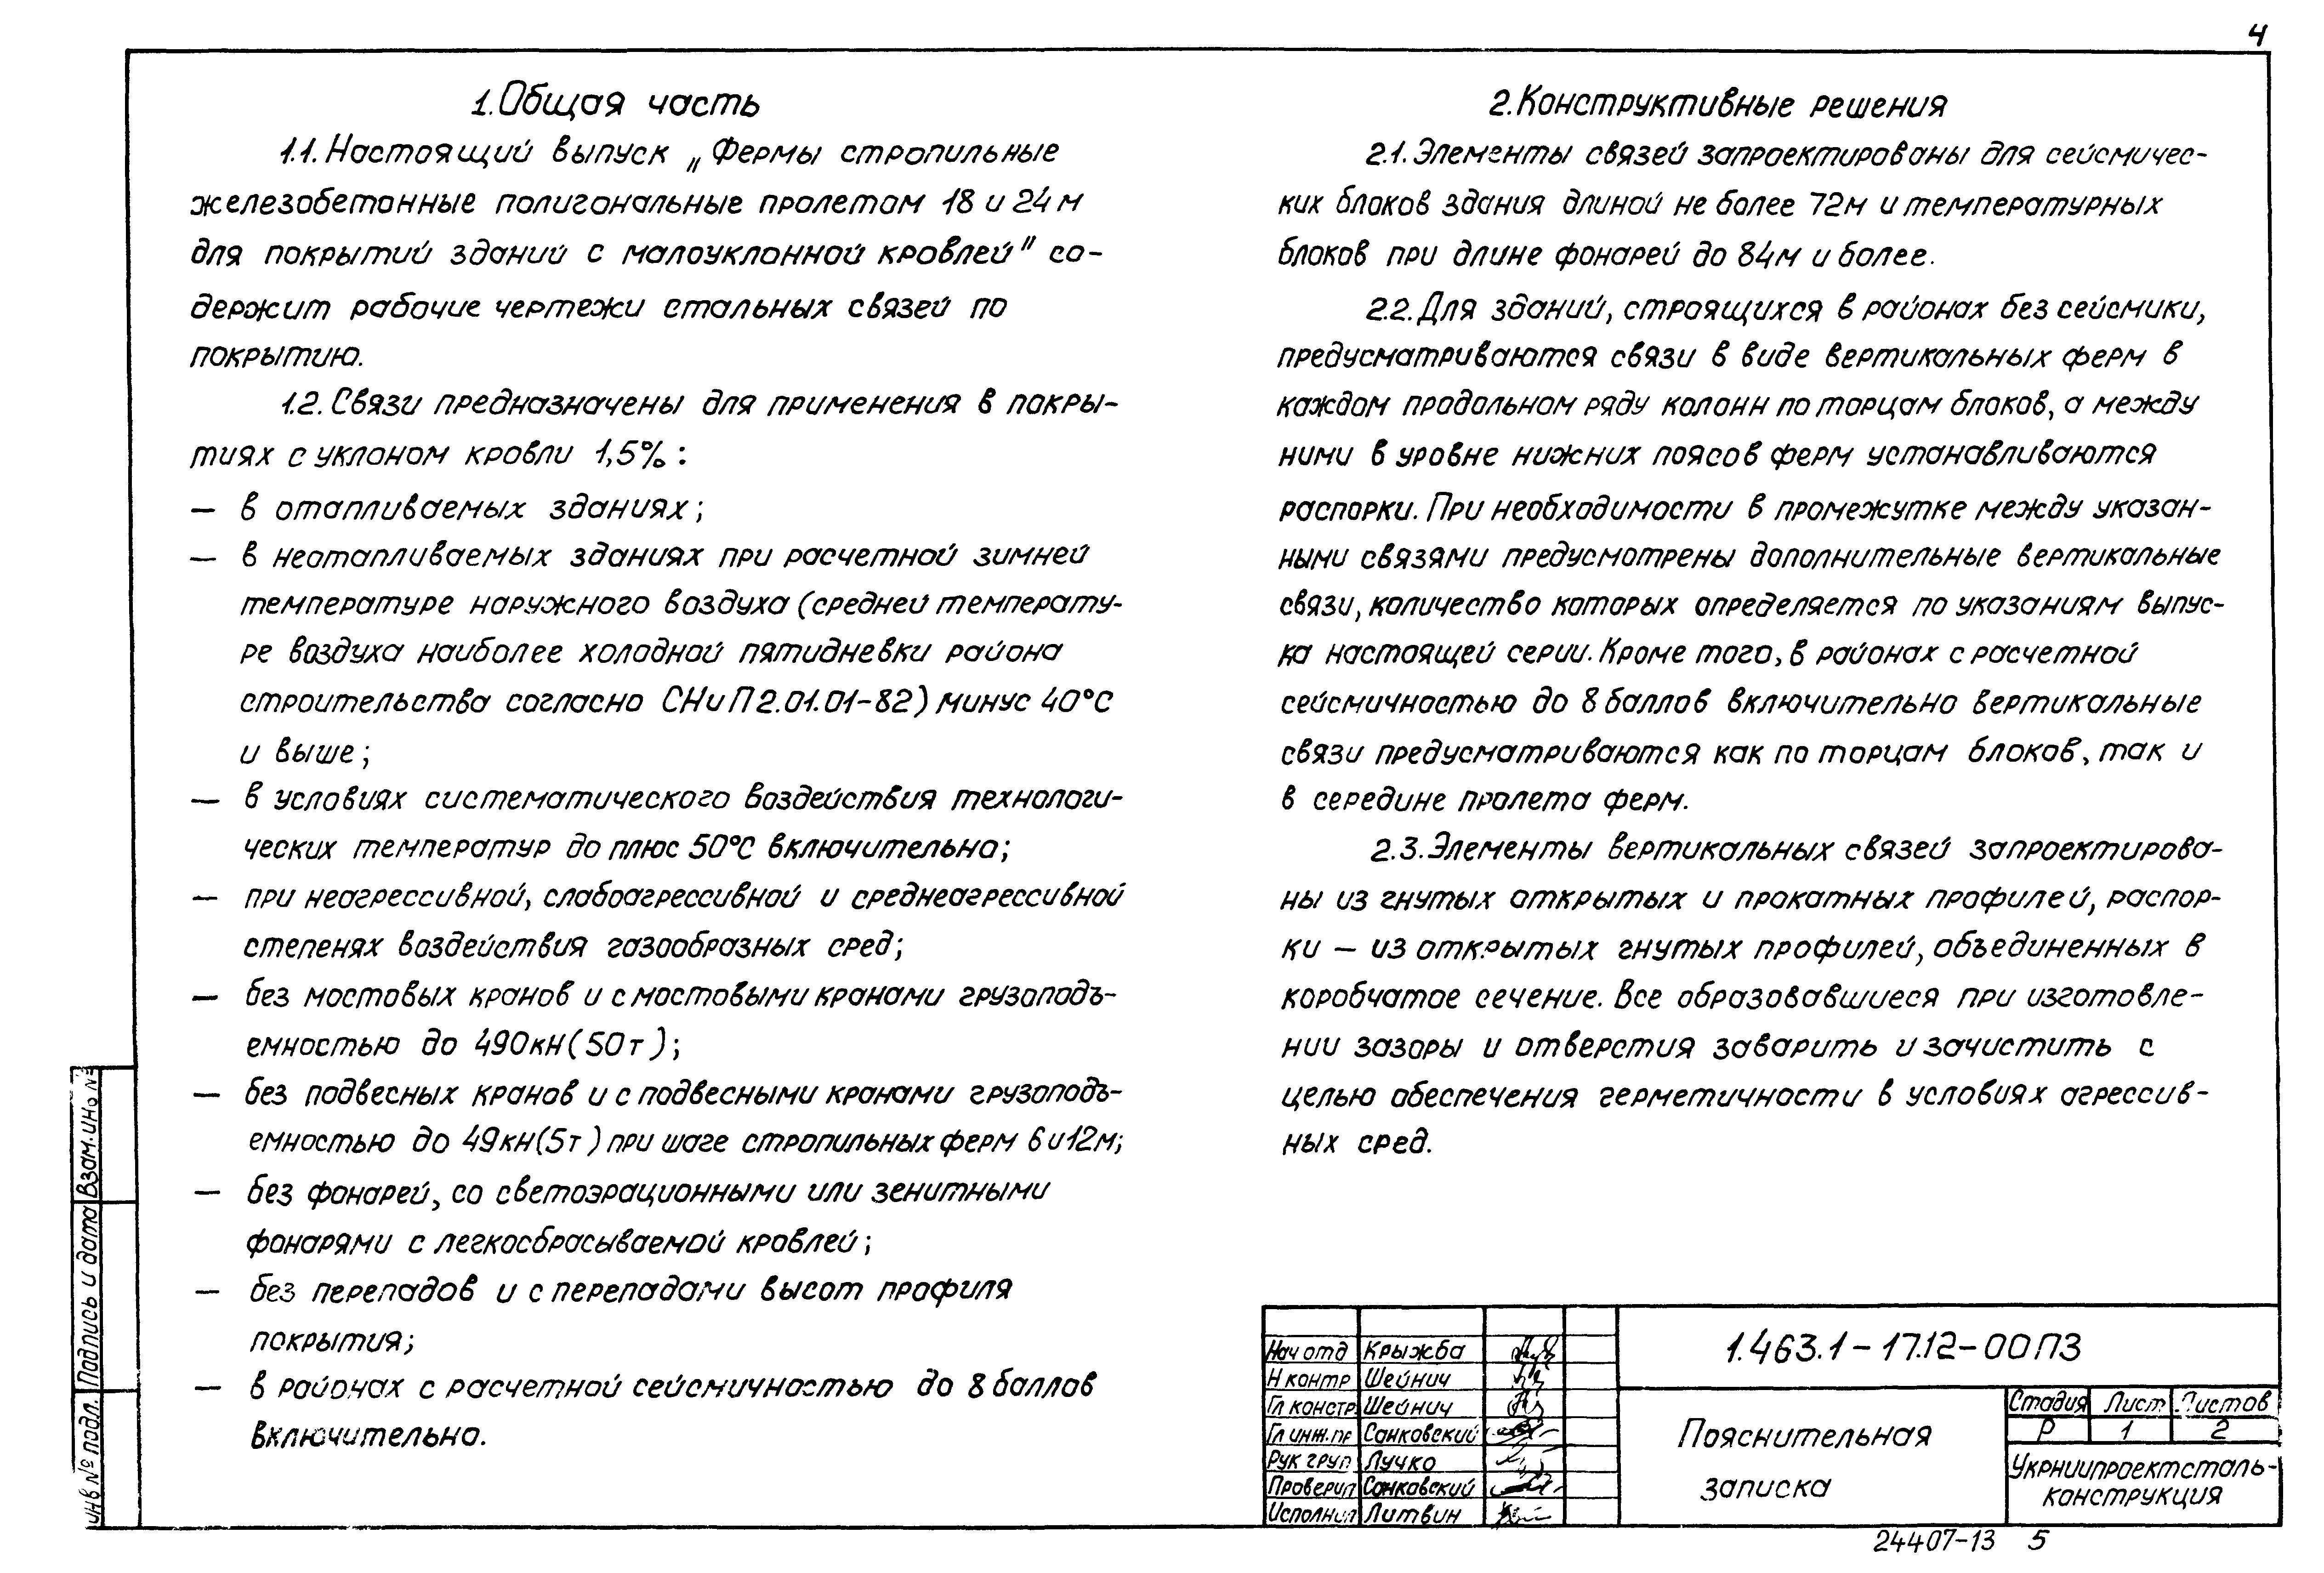 4
1. Общая часть
1.1. Настоящий выпуск „Фермы стропильные
железобетонные полигональные пролетом 18 и 24 м
для покрытий зданий с малоуклонной кровлей" со-
держит рабочие чертежи стальных связей по
покрытию.
1.2. Связи предназначены для применения в покры-
тиях с уклоном кровли 1,5% :
— в отапливаемых зданиях;
— в неотапливаемых зданиях при расчетной зимней
температуре наружного воздуха (средней температу-
ре воздуха наиболее холодной пятидневки района
строительства согласно СНиП 2.01.01-82) минус 40°С
и выше;
— в условиях систематического воздействия технологи-
ческих температур до плюс 50°С включительно;
— при неагрессивной, слабоагрессивной и среднеагрессивной
степенях воздействия газообразных сред;
— без мостовых кранов и с мостовыми кранами грузоподъ-
емностью до 490кН (50т);
— без подвесных кранов и с подвесными кранами грузоподъ-
емностью до 49кН (5т) при шаге стропильных ферм 6 и 12м;
— без фонарей, со светоэрационными или зенитными
фонарями с легкосбрасываемой кровлей;
— без перепадов и с перепадами высот профиля
покрытия;
— в районах с расчетной сейсмичностью до 8 баллов
включительно.
2. Конструктивные решения
2.1. Элементы связей запроектированы для сейсмичес-
ких блоков здания длиной не более 72м и температурных
блоков при длине фонарей до 84м и более.
2.2. Для зданий, строящихся в районах без сейсмики,
предусматриваются связи в виде вертикальных ферм в
каждом продольном ряду колонн по торцам блоков, а между
ними в уровне нижних поясов ферм устанавливаются
распорки. При необходимости в промежутке между указан-
ными связями предусмотрены дополнительные вертикальные
связи, количество которых определяется по указаниям выпус-
ка настоящей серии. Кроме того, в районах с расчетной
сейсмичностью до 8 баллов включительно вертикальные
связи предусматриваются как по торцам блоков, так и
в середине пролета ферм.
2.3. Элементы вертикальных связей запроектирова-
ны из гнутых открытых и прокатных профилей, распор-
ки — из открытых гнутых профилей, объединенных в
коробчатое сечение. Все образовавшиеся при изготовле-
нии зазоры и отверстия заварить и зачистить с
целью обеспечения герметичности в условиях агрессив-
ных сред.
Взам. инв №
Подпись и дата
Инв № подл.
Нач отд Крыжба
Н контр Шейнич
Гл констр. Шейнич
Гл инж. пр Санковский
Рук груп Лучко
Проверил Санковский
Исполнил Литвин
1.463.1-17.12-00ПЗ
Пояснительная
записка
Стадия Лист Листов
Р 1 2
Укрниипроектсталь-
конструкция
24407-13 5